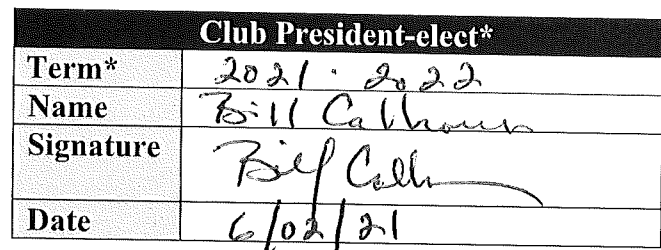 Club President-elect*
Term* 2021 - 2022
Name Bill Calhoun
Signature Bill Calh
Date 6/02/21